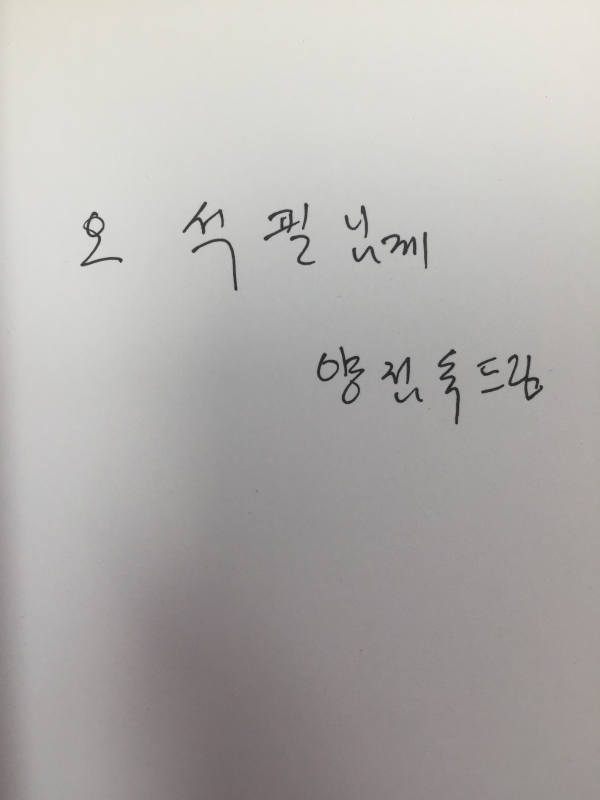 오 석 필 님께
양 전 욱 드림